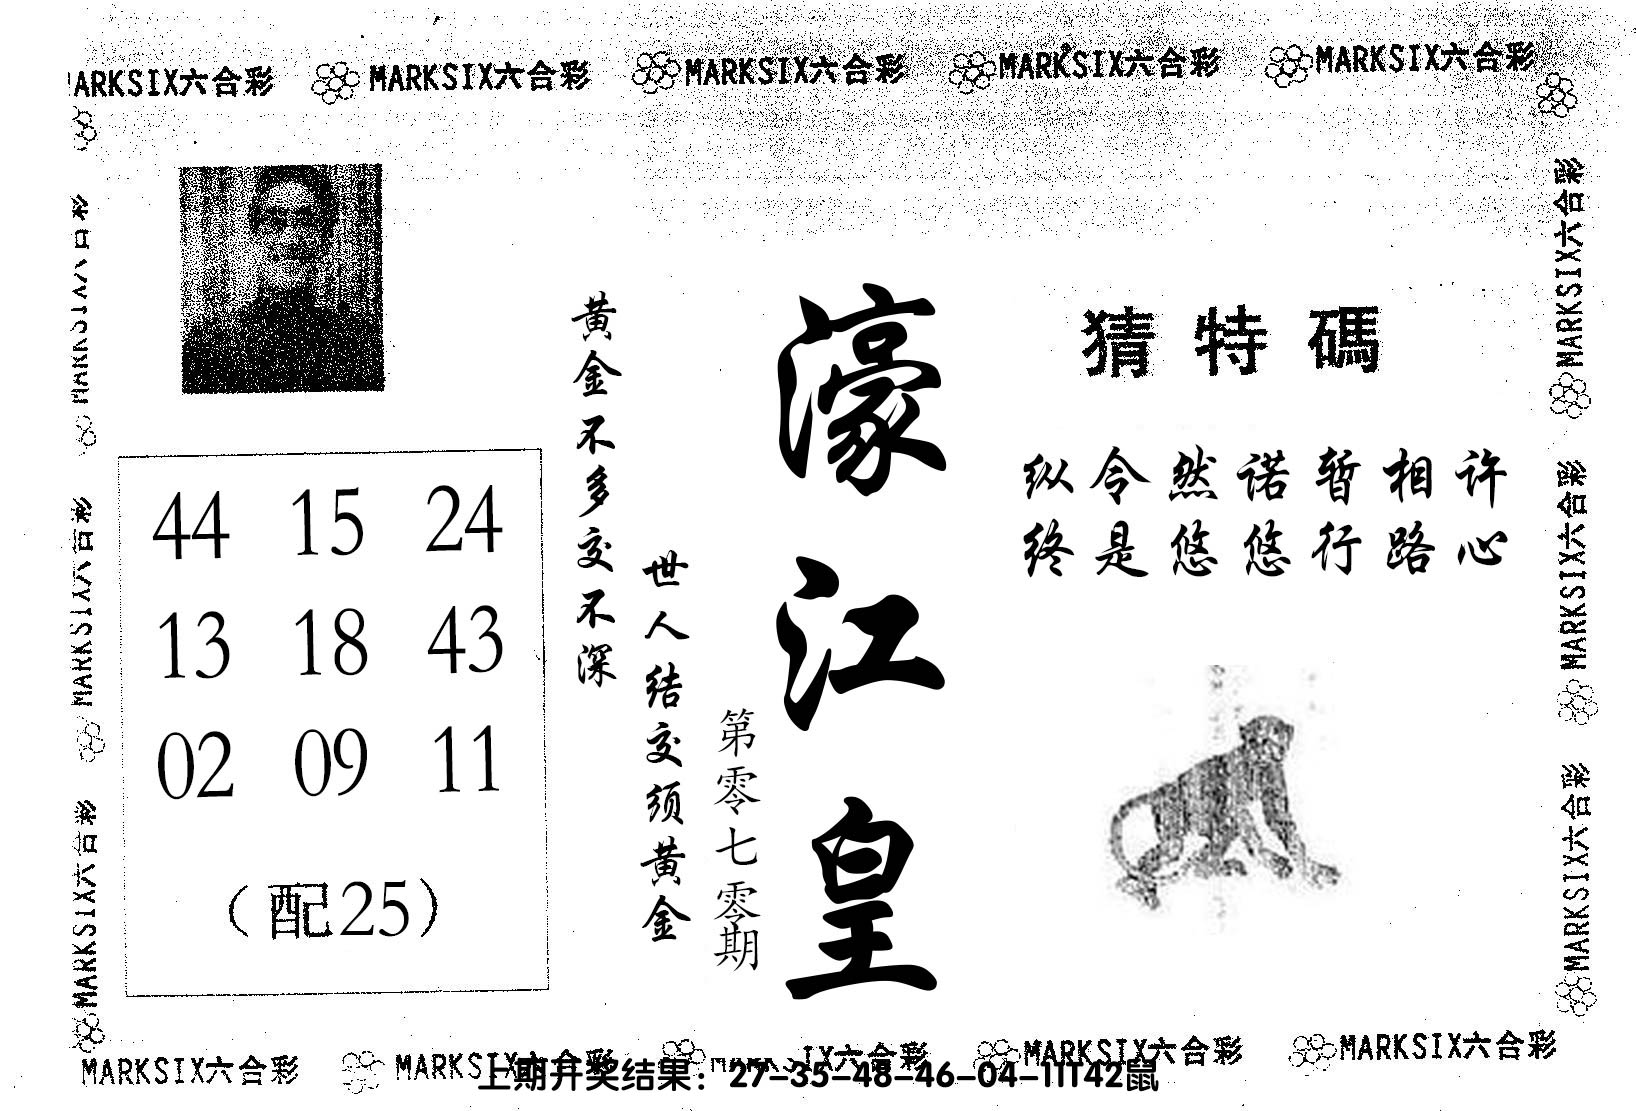 MARKSIX六合彩 MARKSIX六合彩 MARKSIX六合彩 MARKSIX六合彩 MARKSIX六合彩
MARKSIX六合彩
MARKSIX六合彩
MARKSIX六合彩
44 15 24
13 18 43
02 09 11
（配25）
黄金不多交不深
世人结交须黄金
第零七零期
濠江皇
猜特碼
纵令然诺暂相许
终是悠悠行路心
MARKSIX六合彩
MARKSIX六合彩
MARKSIX六合彩
MARKSIX六合彩 MARKSIX六合彩 MARKSIX六合彩 MARKSIX六合彩
上期开奖结果：27-35-48-46-04-11T42鼠